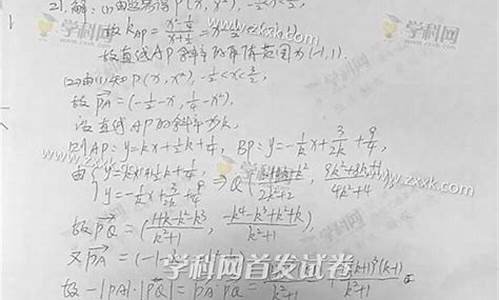 21. 解：(1)由题意得P(x, x²), -½<x<3/2,
故k_AP = (x²-¼)/(x+½) = x-½∈(-1,1)
故直线AP斜率的取值范围为(-1,1).
(2)由(1)知P(x, x²), -½<x<3/2,
故PA→=(-½-x, ¼-x²),
设直线AP的斜率为k,
则AP: y=kx+½k+¼, BP: y=-1/k x+3/2k+9/4,
由{y=kx+½k+¼, y=-1/k x+3/2k+9/4 ⇒ Q(
2k²+2
4k²+4
故PQ→=((1+k-k²-k³)/(k²+1), (-k⁴-k³+k²+k)/(k²+1)),
又PA→=(-1-
故-|PA|·|PQ|=PA→·PQ→=
k²+1
www.zxxk.com
学科网
学科网首发试卷